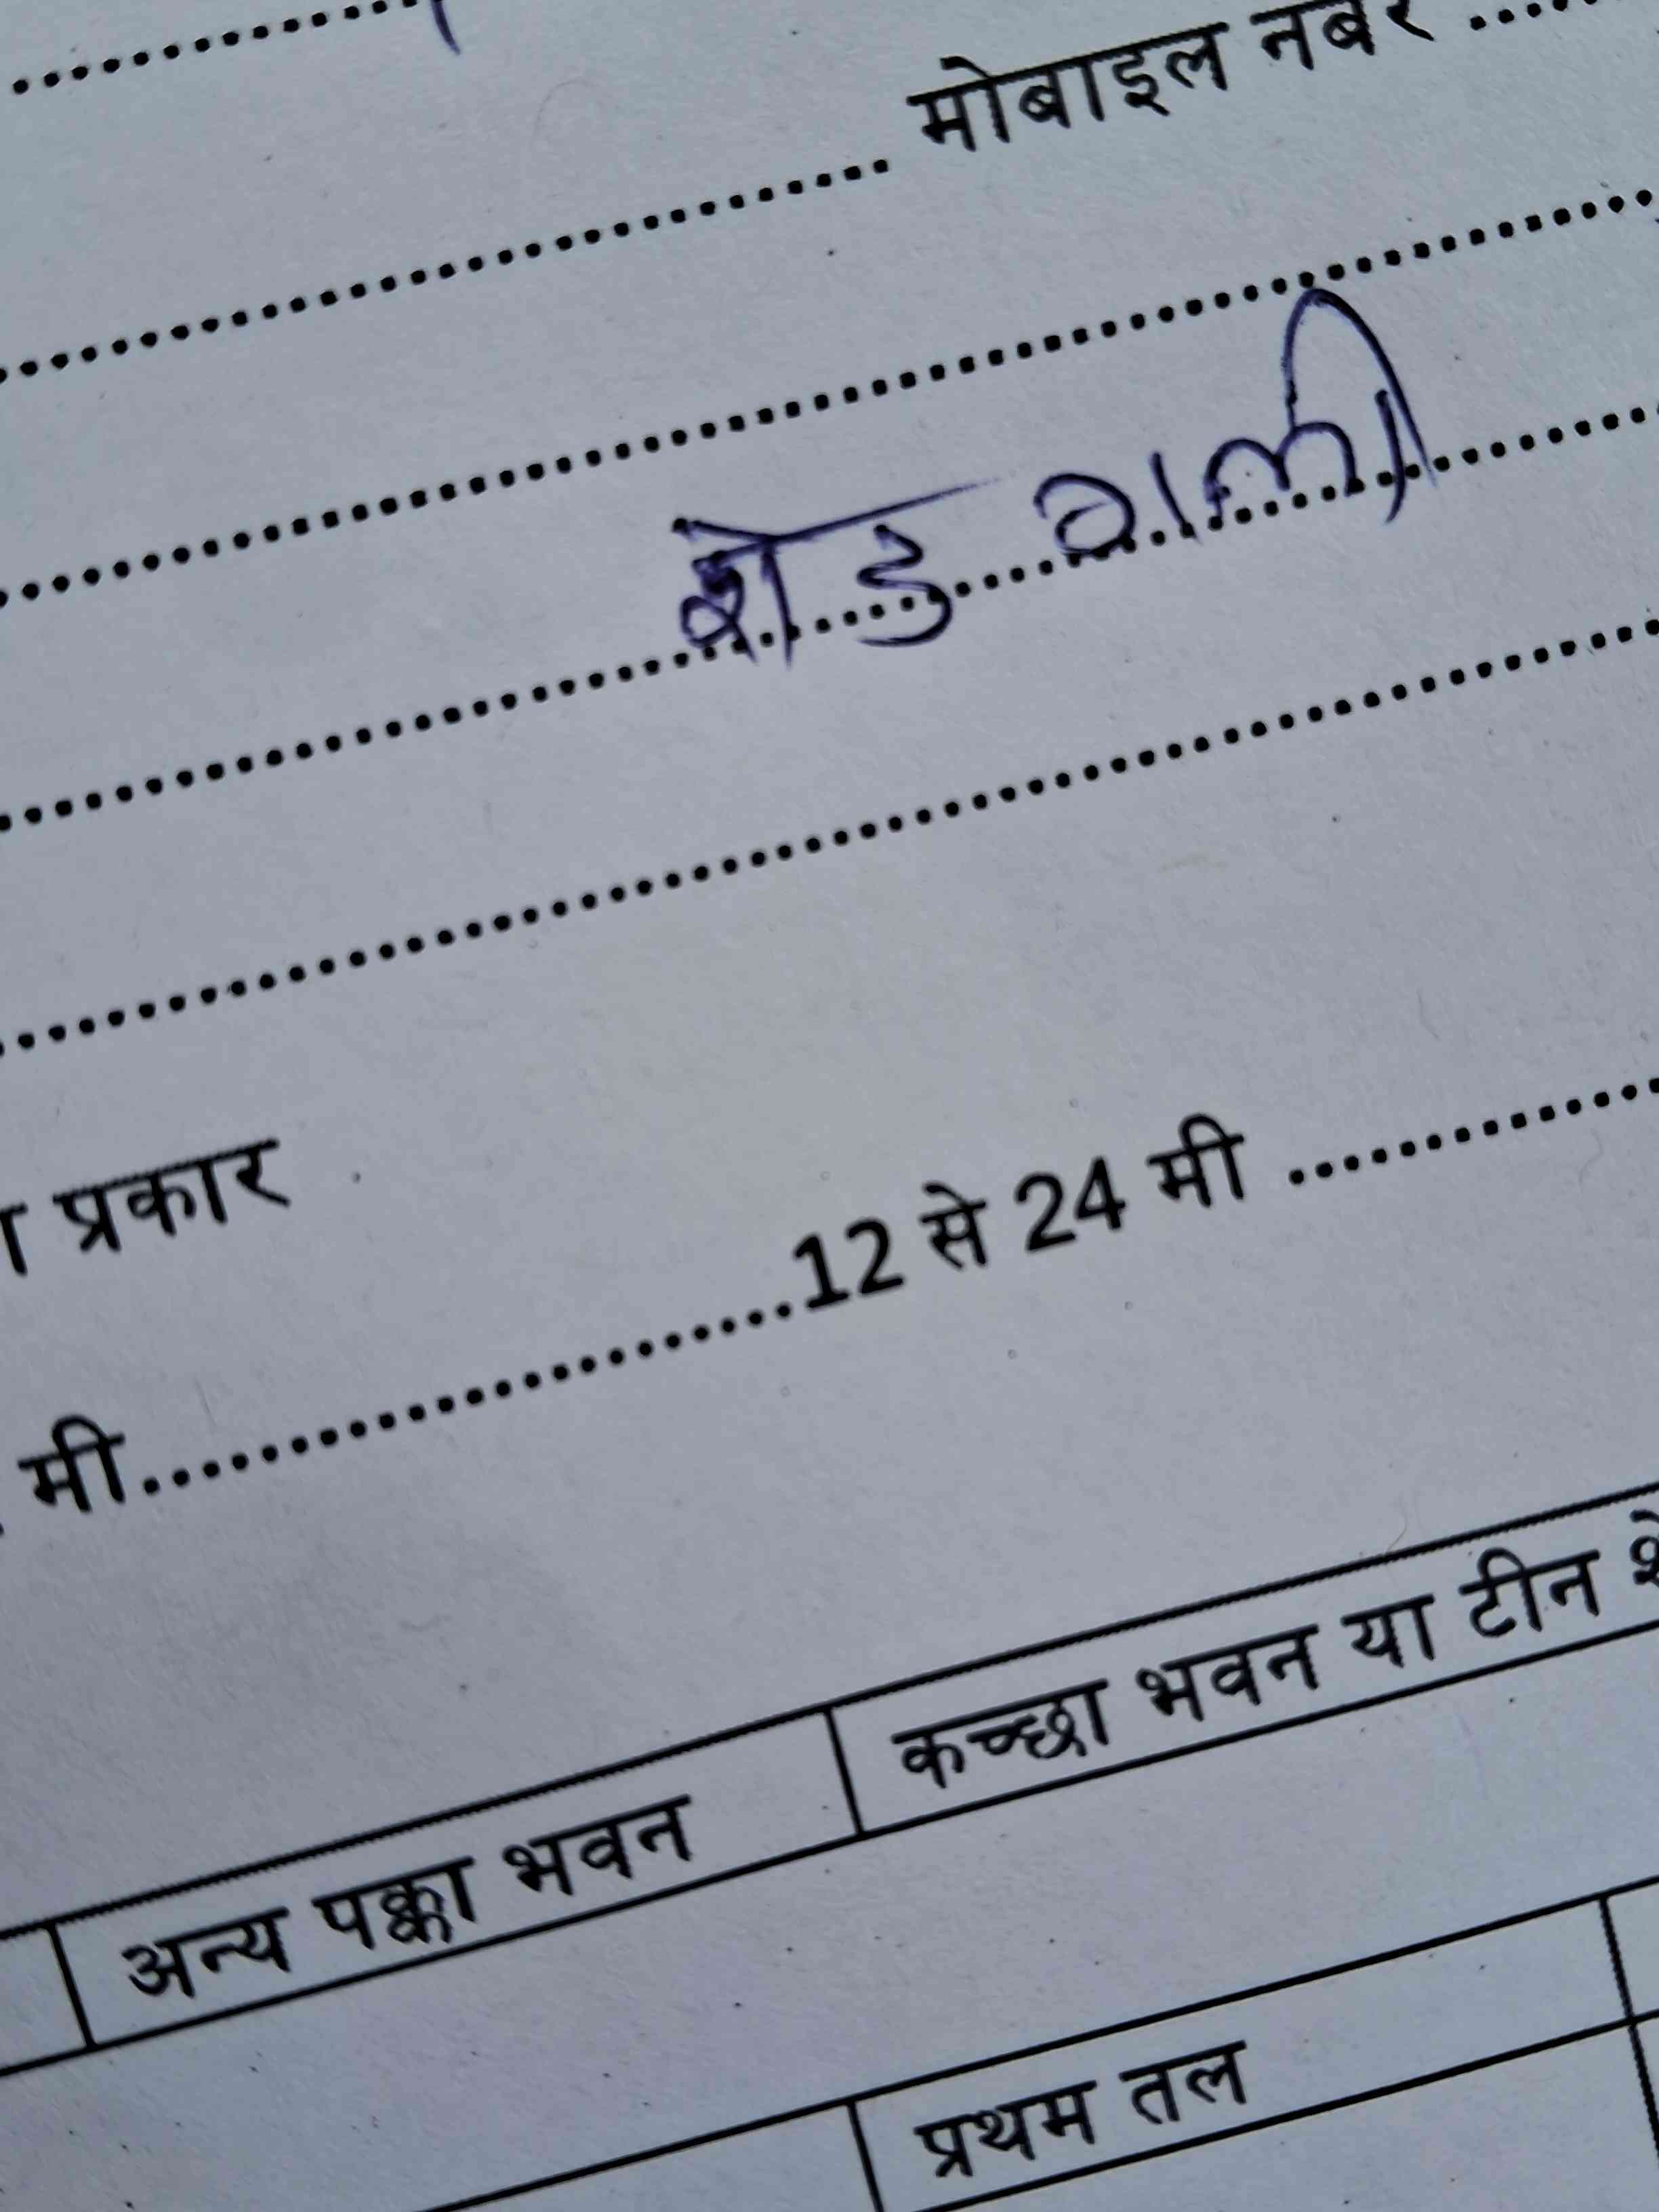 मोबाइल नंबर ....
शेड वाली
प्रकार
मी..........................12 से 24 मी ..............
अन्य पक्का भवन कच्छा भवन या टीन
प्रथम तल